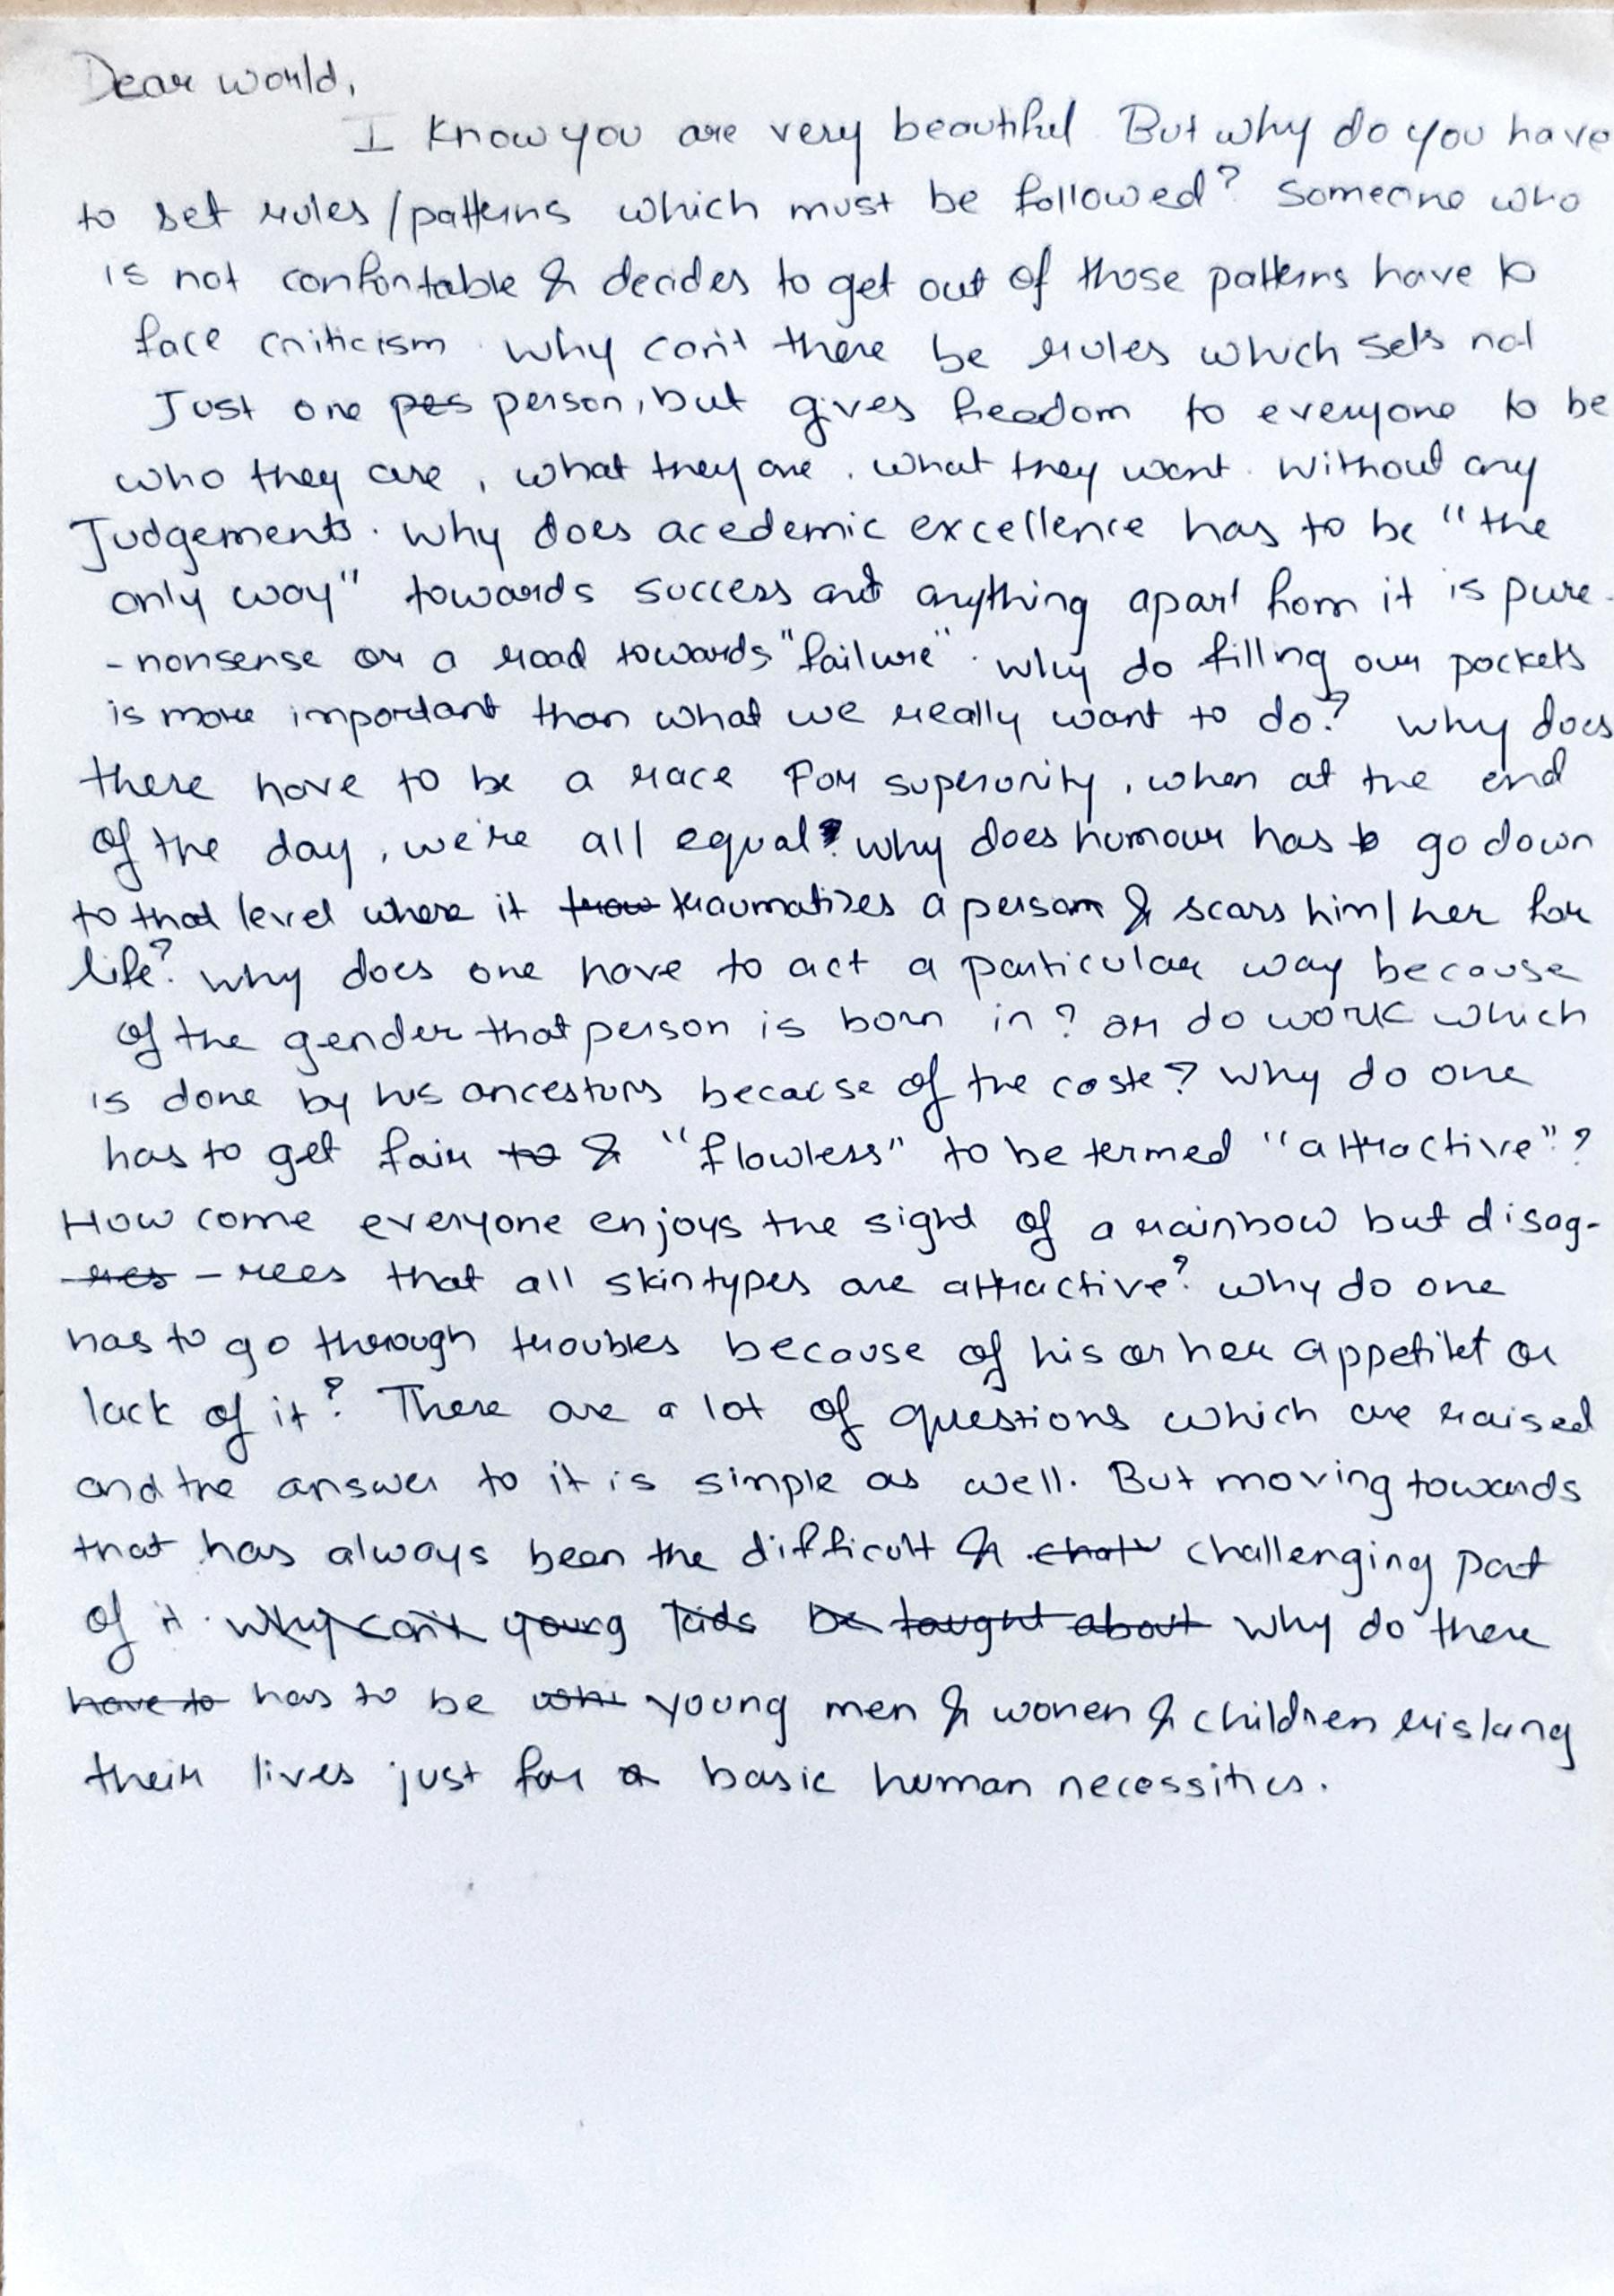 Dear world,
I know you are very beautiful. But why do you have
to set rules/patterns which must be followed? Someone who
is not confortable & decides to get out of those patterns have to
face criticism. Why can't there be rules which sets not
Just one pes person, but gives freedom to everyone to be
who they are, what they are, what they want. Without any
Judgements. Why does acedemic excellence has to be "the
only way" towards success and anything apart from it is pure-
-nonsense or a road towards "failure". Why do filling our pockets
is more important than what we really want to do? Why does
there have to be a race for superority, when at the end
of the day, we're all equal? Why does humour has to go down
to that level where it trau traumatizes a person & scars him/her for
life? Why does one have to act a particular way because
of the gender that person is born in? or do work which
is done by his ancestors because of the caste? Why do one
has to get fair to & "flawless" to be termed "attractive"?
How come everyone enjoys the sight of a rainbow but disag-
-res -rees that all skintypes are attractive? Why do one
has to go through troubles because of his or her appetitet or
lack of it? There are a lot of questions which are raised
and the answer to it is simple as well. But moving towards
that has always been the difficult & chal challenging part
of it. Why can't young kids be taught about Why do there
have to has to be whi young men & women & children risking
their lives just for a basic human necessities.